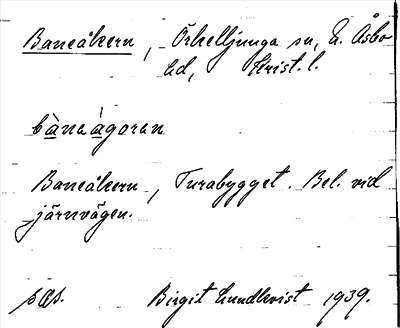 Baneåkern, Örkelljunga sn, N. Åsbo
hd, Krist. l.
bànaágoran
Baneåkern, Turabygget. Bel. vid
järnvägen.
sås. Birgit Lundkvist 1939.